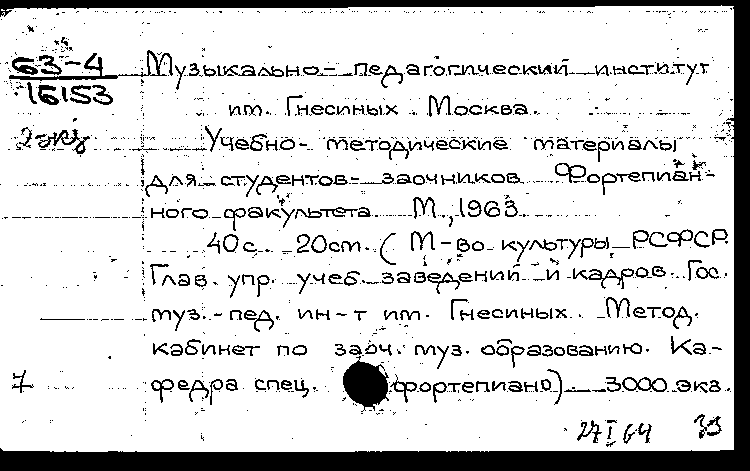 63-4
16153
2 экз
Музыкально-педагогический институт
им. Гнесиных. Москва.
Учебно-методические материалы
для студентов-заочников Фортепиан-
ного факультета. М., 1963.
40с. 20см. (М-во культуры РСФСР.
Глав. упр. учеб. заведений и кадров. Гос.
муз.-пед. ин-т им. Гнесиных. Метод.
кабинет по заоч. муз. образованию. Ка-
федра спец. фортепиано) 3000 экз.
7
27 I 64 33